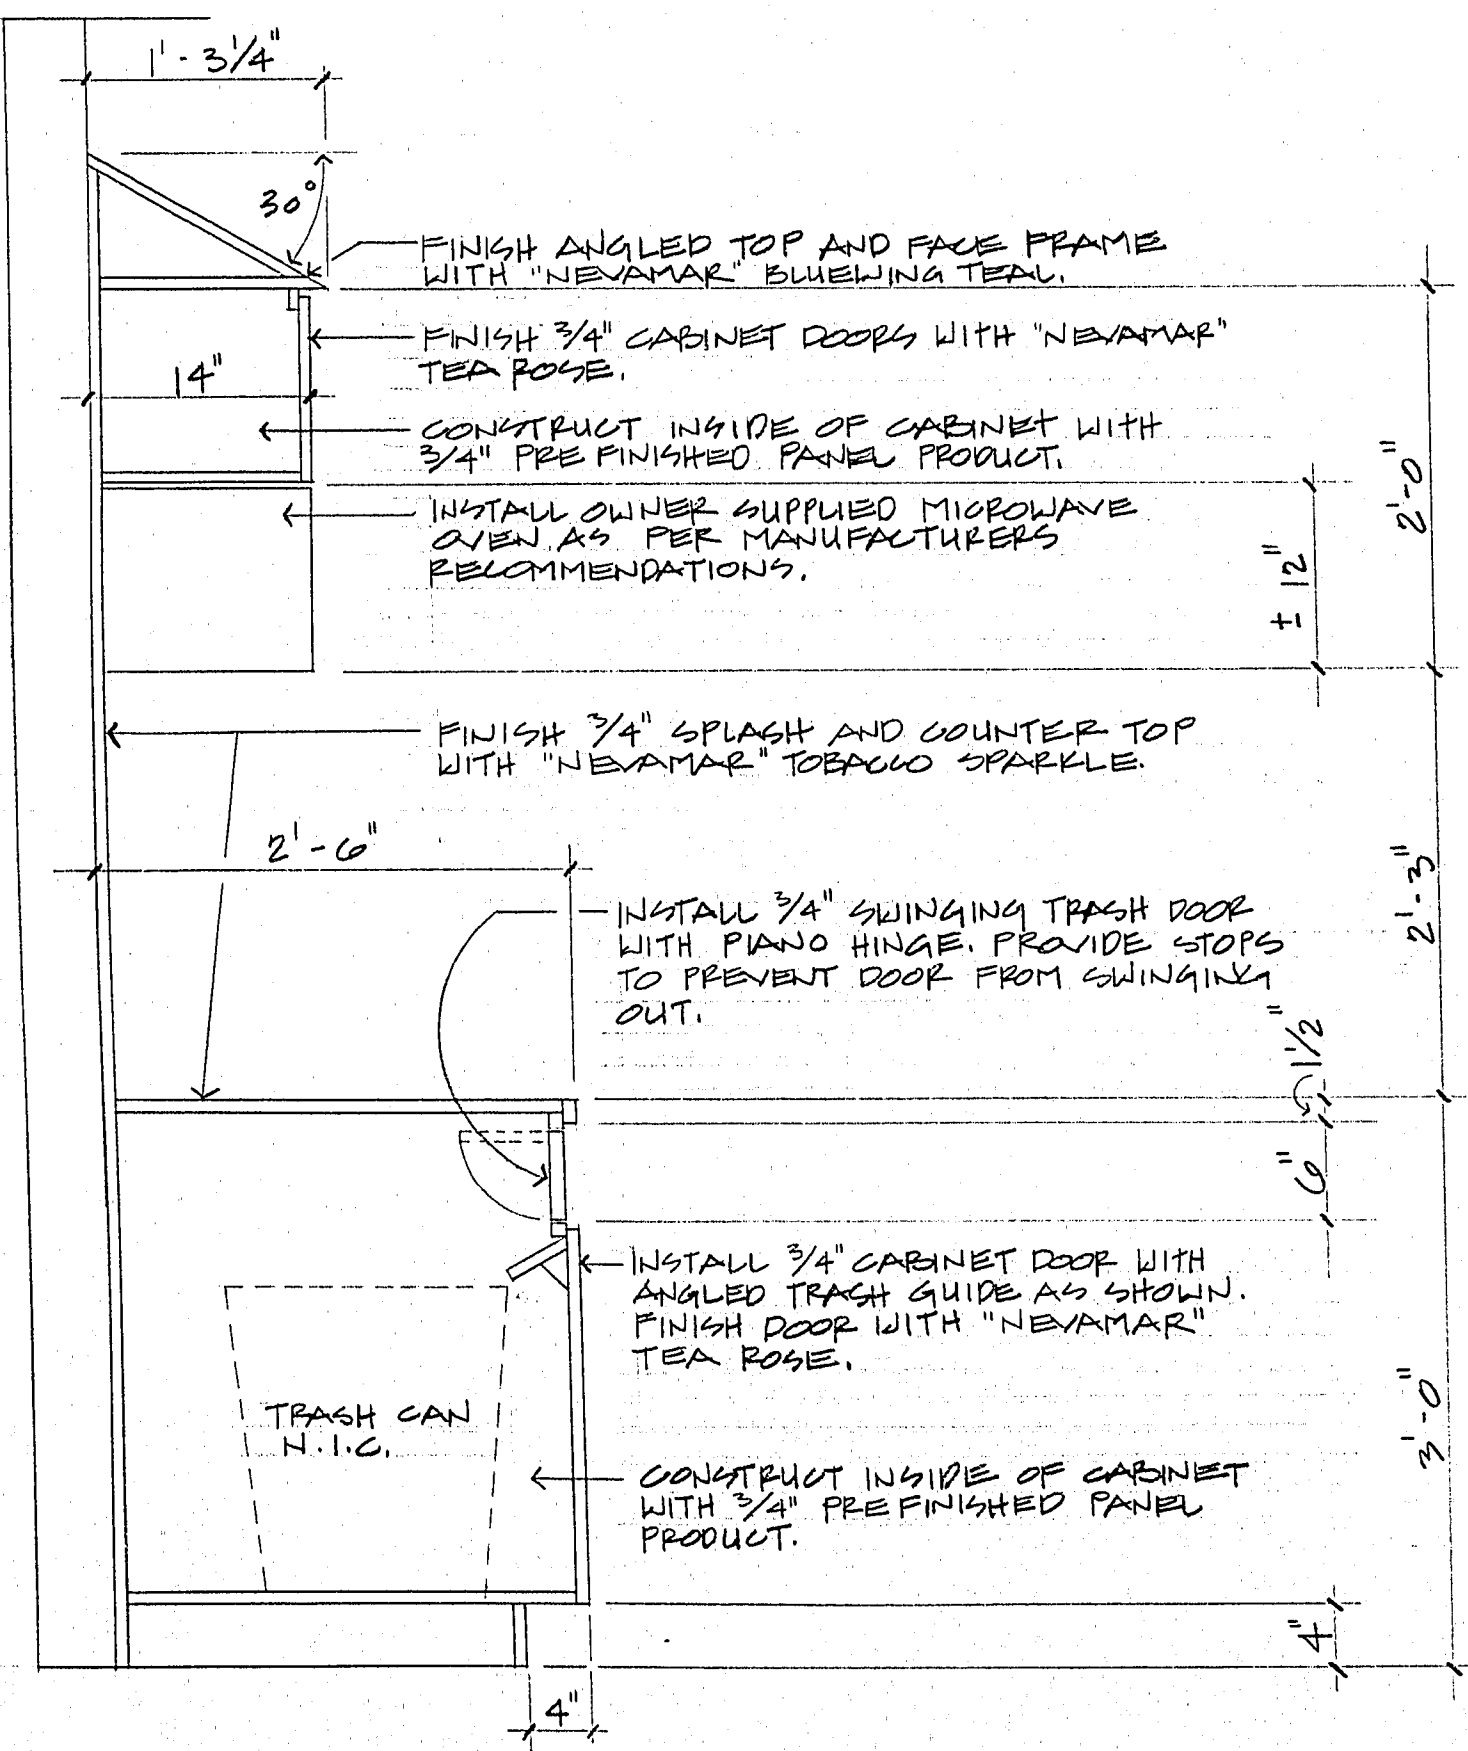 1'-3 1/4"
30°
FINISH ANGLED TOP AND FACE FRAME
WITH "NEVAMAR" BLUEWING TEAL.
FINISH 3/4" CABINET DOORS WITH "NEVAMAR"
TEA ROSE.
14"
CONSTRUCT INSIDE OF CABINET WITH
3/4" PRE FINISHED PANEL PRODUCT.
INSTALL OWNER SUPPLIED MICROWAVE
OVEN AS PER MANUFACTURERS
RECOMMENDATIONS.
± 12"
2'-0"
FINISH 3/4" SPLASH AND COUNTER TOP
WITH "NEVAMAR" TOBACCO SPARKLE.
2'-6"
2'-3"
INSTALL 3/4" SWINGING TRASH DOOR
WITH PIANO HINGE. PROVIDE STOPS
TO PREVENT DOOR FROM SWINGING
OUT.
1 1/2"
6"
INSTALL 3/4" CABINET DOOR WITH
ANGLED TRASH GUIDE AS SHOWN.
FINISH DOOR WITH "NEVAMAR"
TEA ROSE.
TRASH CAN
N.I.C.
3'-0"
CONSTRUCT INSIDE OF CABINET
WITH 3/4" PRE FINISHED PANEL
PRODUCT.
4"
4"